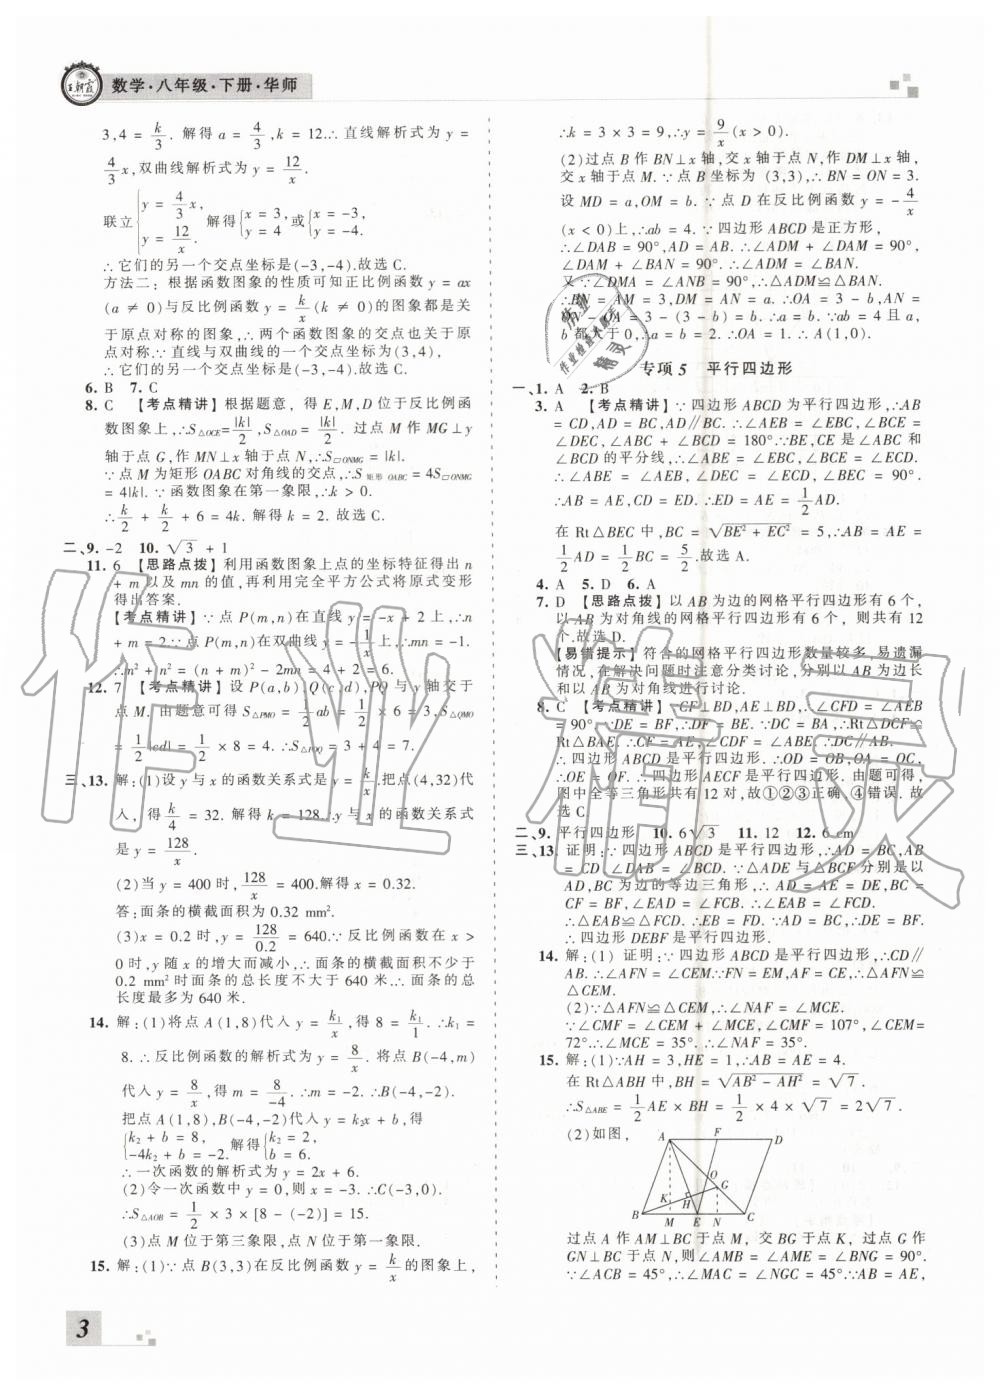 王朝霞
数学·八年级·下册·华师
3,4 = k/3. 解得 a = 4/3,k = 12.∴直线解析式为 y =
4/3 x,双曲线解析式为 y = 12/x.
联立{y = 4/3 x, y = 12/x. 解得{x = 3, y = 4 或{x = -3, y = -4.
∴它们的另一个交点坐标是(-3,-4).故选 C.
方法二:根据函数图象的性质可知正比例函数 y = ax
(a ≠ 0)与反比例函数 y = k/x (k ≠ 0)的图象都是关
于原点对称的图象,∴两个函数图象的交点也关于原
点对称.∵直线与双曲线的一个交点坐标为(3,4),
∴它们的另一个交点坐标是(-3,-4).故选 C.
6. B 7. C
8. C 【考点精讲】根据题意,得 E,M,D 位于反比例函
数图象上,∴S△OCE = |k|/2,S△OAD = |k|/2. 过点 M 作 MG⊥y
轴于点 G,作 MN⊥x 轴于点 N,∴S□ONMG = |k|.
∵点 M 为矩形 OABC 对角线的交点,∴S矩形 OABC = 4S□ONMG
= 4|k|.∵函数图象在第一象限,∴k > 0.
∴k/2 + k/2 + 6 = 4k. 解得 k = 2. 故选 C.
二、9. -2 10. √3 + 1
11. 6 【思路点拨】利用函数图象上点的坐标特征得出 n
+ m 以及 mn 的值,再利用完全平方公式将原式变形
得出答案.
【考点精讲】∵点 P(m,n)在直线 y = -x + 2 上,∴n
+ m = 2.∵点 P(m,n)在双曲线 y = -1/x 上,∴mn = -1.
∴m² + n² = (n + m)² - 2mn = 4 + 2 = 6.
12. 7 【考点精讲】设 P(a,b),Q(c,d),PQ 与 y 轴交于
点 M. 由题意可得 S△PMO = 1/2 ab = 1/2 × 6 = 3,S△QMO
= 1/2 |cd| = 1/2 × 8 = 4. ∴S△POQ = 3 + 4 = 7.
三、13. 解:(1)设 y 与 x 的函数关系式是 y = k/x.把点(4,32)代
入,得 k/4 = 32. 解得 k = 128. ∴y 与 x 的函数关系式
是 y = 128/x.
(2)当 y = 400 时,128/x = 400.解得 x = 0.32.
答:面条的横截面积为 0.32 mm².
(3)x = 0.2 时,y = 128/0.2 = 640.∵反比例函数在 x >
0 时,y 随 x 的增大而减小,∴面条的横截面积不小于
0.2 mm² 时面条的总长度不大于 640 米.∴面条的总
长度最多为 640 米.
14. 解:(1)将点 A(1,8)代入 y = k₁/x,得 8 = k₁/1. ∴k₁ =
8. ∴反比例函数的解析式为 y = 8/x. 将点 B(-4,m)
代入 y = 8/x,得 m = 8/-4. ∴m = -2. ∴B(-4,-2).
把点 A(1,8),B(-4,-2)代入 y = k₂x + b,得
{k₂ + b = 8, -4k₂ + b = -2. 解得{k₂ = 2, b = 6.
∴一次函数的解析式为 y = 2x + 6.
(2)令一次函数中 y = 0,解得 x = -3. ∴C(-3,0).
∴S△AOB = 1/2 × 3 × [8 - (-2)] = 15.
(3)点 M 位于第三象限,点 N 位于第一象限.
15. 解:(1)∵点 B(3,3)在反比例函数 y = k/x 的图象上,
3
∴k = 3 × 3 = 9,∴y = 9/x (x > 0).
(2)过点 B 作 BN⊥x 轴,交 x 轴于点 N,作 DM⊥x 轴,
交 x 轴于点 M.∵点 B 坐标为 (3,3),∴BN = ON = 3.
设 MD = a,OM = b.∵点 D 在反比例函数 y = -4/x
(x < 0)上,∴ab = 4.∵四边形 ABCD 是正方形,
∴∠DAB = 90°,AD = AB. ∴∠ADM + ∠DAM = 90°,
∠DAM + ∠BAN = 90°. ∴∠ADM = ∠BAN.
又∵∠DMA = ∠BNA = 90°,∴△ADM≌△BAN.
∴BN = AM = 3,DM = AN = a. ∴OA = 3 - b,AN =
ON - OA = 3 - (3 - b) = b. ∴a = b.∵ab = 4 且 a,
b 都大于 0,∴a = b = 2. ∴OA = 1. ∴A(1,0).
专项 5 平行四边形
一、1. A 2. B
3. A 【考点精讲】∵四边形 ABCD 为平行四边形,∴AB
= CD,AD = BC,AD∥BC. ∴∠AEB = ∠EBC,∠BCE =
∠DEC,∠ABC + ∠DCB = 180°.∵BE,CE 是∠ABC 和
∠BCD 的平分线,∴∠ABE = ∠EBC,∠BCE = ∠ECD.
∴∠ABE = ∠AEB,∠DEC = ∠DCE,∠EBC + ∠ECB = 90°.
∴AB = AE,CD = ED. ∴ED = AE = 1/2 AD.
在 Rt△BEC 中,BC = √(BE² + EC²) = 5,∴AB = AE =
1/2 AD = 1/2 BC = 5/2.故选 A.
4. A 5. D 6. A
7. D 【思路点拨】以 AB 为边的网格平行四边形有 6 个,
以 AB 为对角线的网格平行四边形有 6 个,则共有 12
个.故选 D.
【易错提示】符合的网格平行四边形数量较多,易遗漏
情况,在解决问题时注意分类讨论,分别以 AB 为边长
和以 AB 为对角线进行讨论.
8. C 【考点精讲】∵CF⊥BD,AE⊥BD,∴∠CFD = ∠AEB
= 90°.∵DE = BF,∴DF = BE.∵DC = BA,∴Rt△DCF≌
Rt△BAE. ∴CF = AE,∠CDF = ∠ABE. ∴DC∥AB.
∴四边形 ABCD 是平行四边形.∴OD = OB,OA = OC.
∴OE = OF. ∴四边形 AECF 是平行四边形. 由题可得,
图中全等三角形共有 12 对,故①②③正确,④错误. 故
选 C.
二、9. 平行四边形 10. 6√3 11. 12 12. 6 cm
三、13. 证明:∵四边形 ABCD 是平行四边形,∴AD = BC,AB
= CD,∠DAB = ∠BCD.∵△ADE 与△BCF 分别是以
AD,BC 为边的等边三角形,∴AD = AE,BC = CF,
∠DAE = ∠BCF = 60°. ∴∠EAB = ∠FCD.
∴△EAB≌△FCD. ∴EB = FD.∵AD = BC,∴DE = BF.
∴四边形 DEBF 是平行四边形.
14. 解:(1) 证明:∵四边形 ABCD 是平行四边形,∴CD∥
AB. ∴∠AFN = ∠CEM.∵FN = EM,AF = CE,∴△AFN≌
△CEM.
(2)∵△AFN≌△CEM,∴∠NAF = ∠MCE.
∵∠CMF = ∠CEM + ∠MCE,∠CMF = 107°,∠CEM =
72°.∴∠MCE = 35°. ∴∠NAF = 35°.
15. 解:(1)∵AH = 3,HE = 1,∴AB = AE = 4.
在 Rt△ABH 中,BH = √(AB² - AH²) = √7.
∴S△ABE = 1/2 AE × BH = 1/2 × 4 × √7 = 2√7.
(2)如图,
A F D
O
K H G
B M E N C
过点 A 作 AM⊥BC 于点 M,交 BG 于点 K,过点 G 作
GN⊥BC 于点 N,则∠AMB = ∠AME = ∠BNG = 90°.
∵∠ACB = 45°,∴∠MAC = ∠NGC = 45°.∵AB = AE,
作业精灵